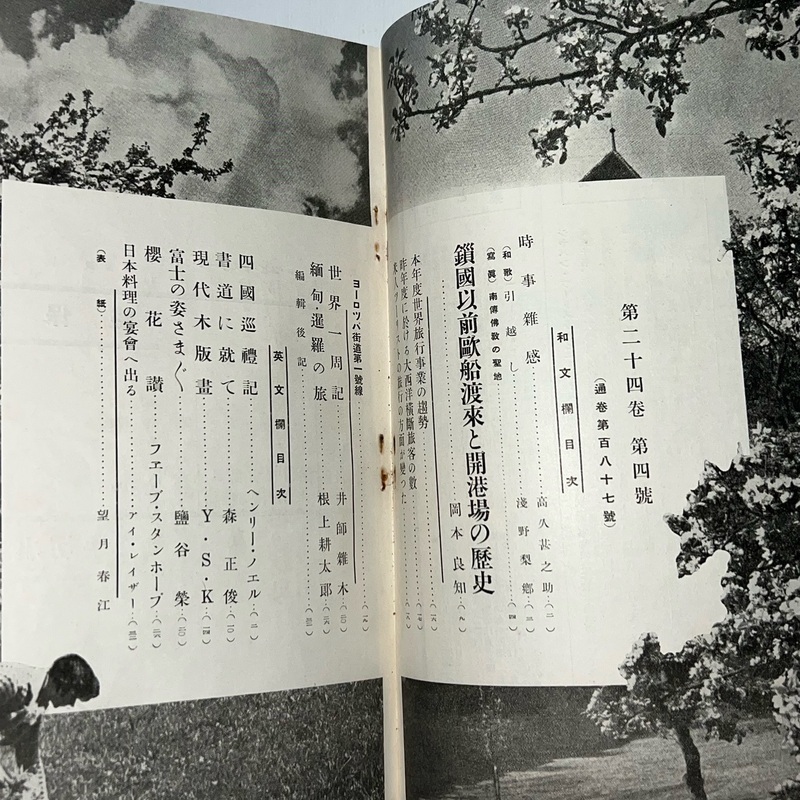 第二十四卷 第四號
(通卷第百八十七號)
和文欄目次
時事雜感……高久甚之助…(二)
(和歌)引越し……淺野梨鄕…(三)
(寫眞)南傳佛敎の聖地……(四)
鎖國以前歐船渡來と開港場の歷史……岡本良知…(九)
本年度世界旅行事業の趨勢……
昨年度に於ける大西洋橫斷旅客の數……
旅行の方面が變つた……
ヨーロツパ街道第一號線……
世界一周記……井師雜木…
緬甸・暹羅の旅……根上耕太郞…
編輯後記……
英文欄目次
四國巡禮記……ヘンリー・ノエル…(二)
書道に就て……森正俊…(一〇)
現代木版畫……Y・S・K…(一四)
富士の姿さまざま……鹽谷榮…(二〇)
櫻花讃……フエーブ・スタンホープ…
日本料理の宴會へ出る……アイ・レイザー…
(表紙)……望月春江